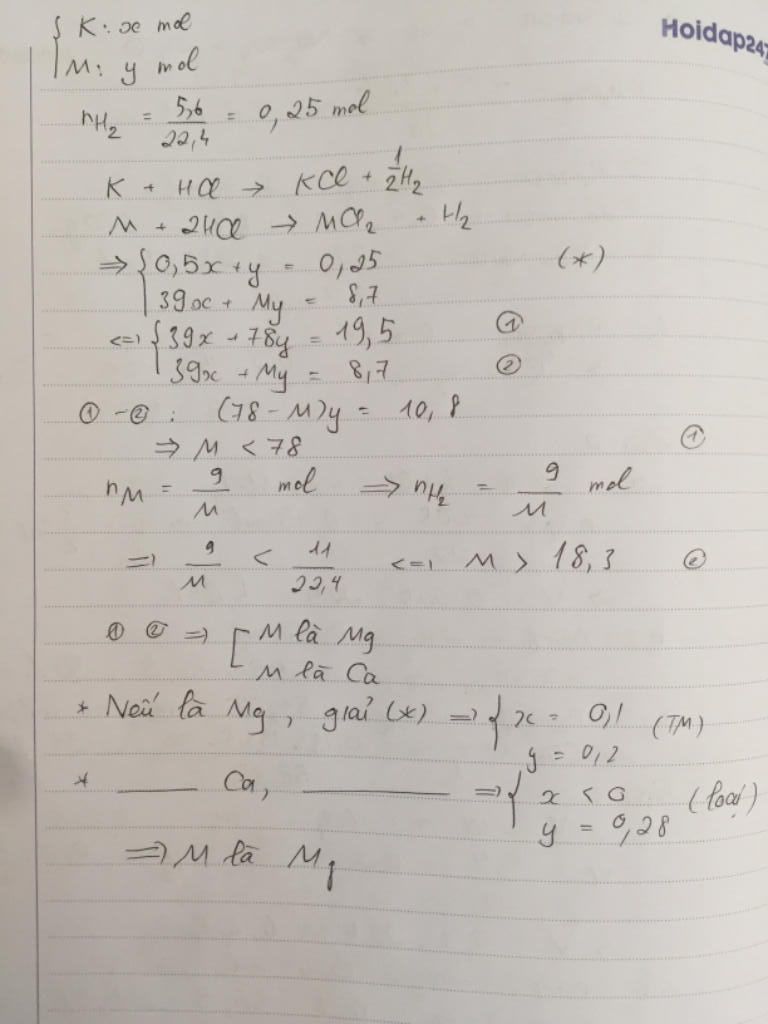 Hoidap247
{ K: x mol
{ M: y mol
nH₂ = 5,6/22,4 = 0,25 mol
K + HCl → KCl + 1/2H₂
M + 2HCl → MCl₂ + H₂
⇒ { 0,5x + y = 0,25 (*)
{ 39x + My = 8,7
<=> { 39x + 78y = 19,5 ①
{ 39x + My = 8,7 ②
① - ② : (78 - M)y = 10,8
⇒ M < 78 ①
nM = 9/M mol ⇒ nH₂ = 9/M mol
⇒ 9/M < 11/22,4 <=> M > 18,3 ②
① ② ⇒ [ M là Mg
[ M là Ca
* Nếu là Mg, giải (*) ⇒ { x = 0,1 (TM)
{ y = 0,2
* ___ Ca, ______ ⇒ { x < 0 (loại)
{ y = 0,28
⇒ M là Mg